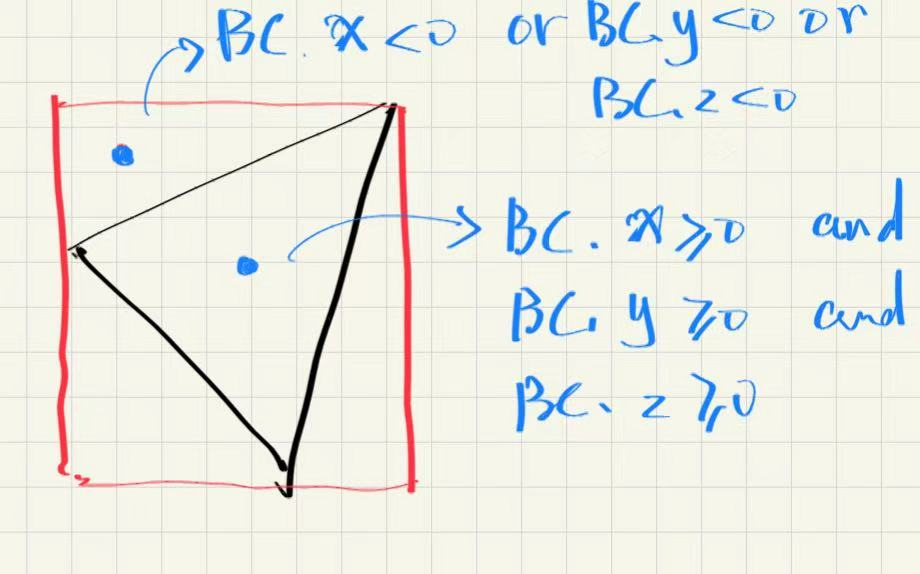 BC. x < 0 or BC. y < 0 or
BC. z < 0
BC. x ⩾ 0 and
BC. y ⩾ 0 and
BC. z ⩾ 0